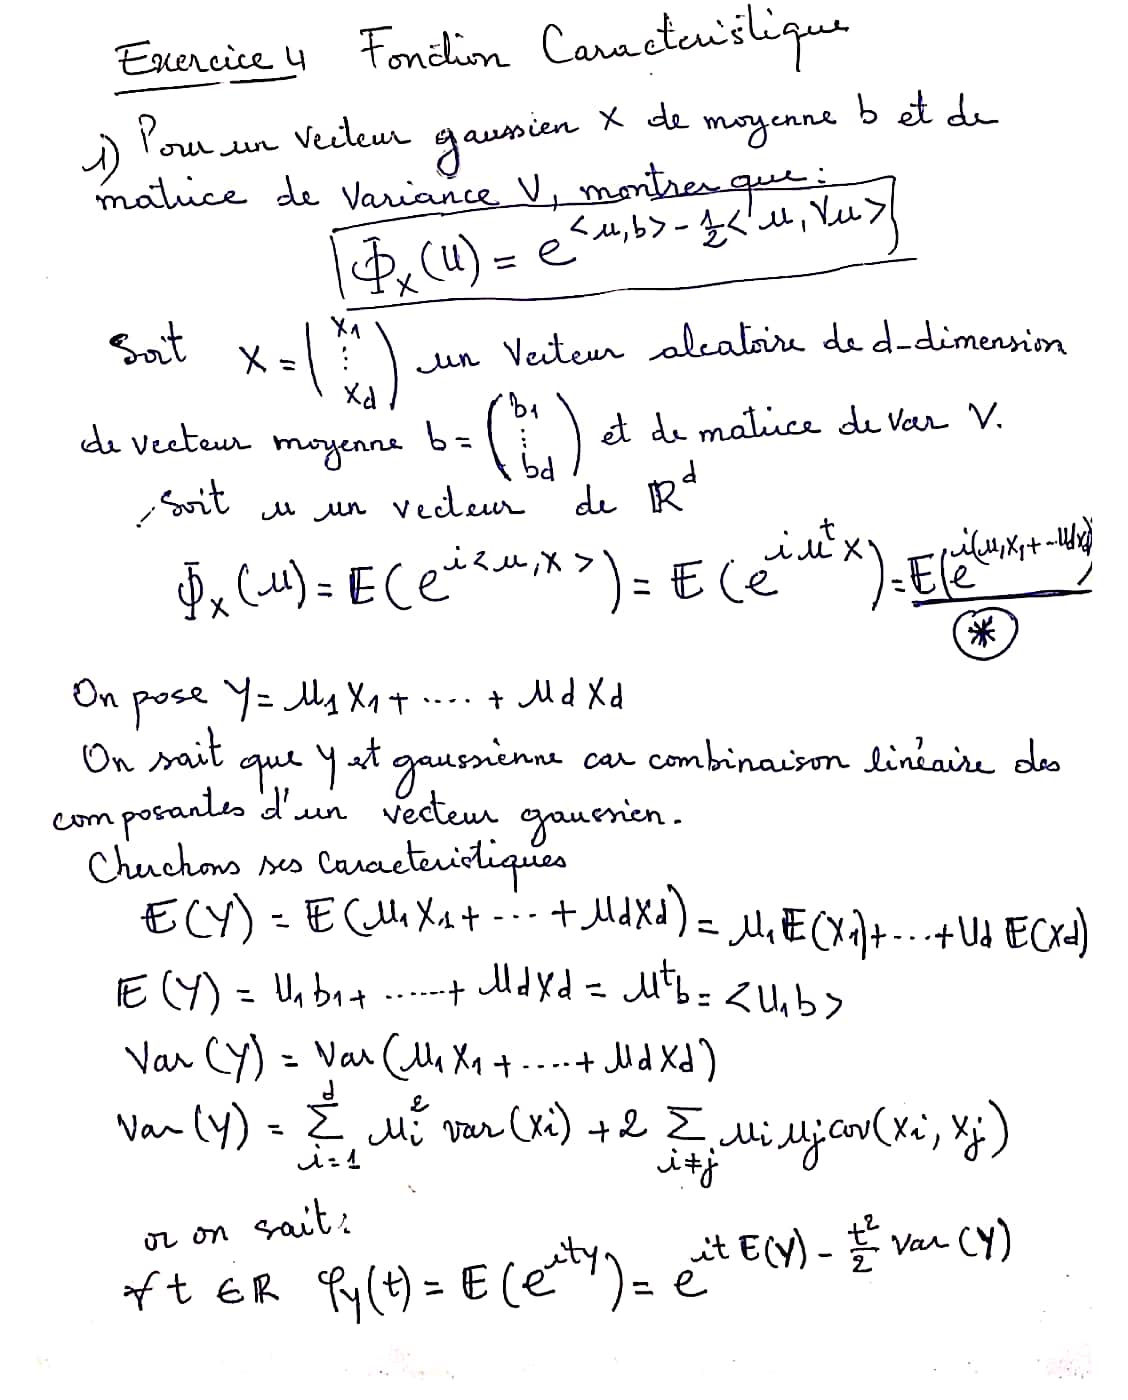 Exercice 4 Fonction Caracteristique
1) Pour un Vecteur gaussien X de moyenne b et de
matrice de Variance V, montrer que :
Φ_X(u) = e^{<u,b> - 1/2 <u,Vu>}
Soit X = (X1 ⋮ Xd) un Vecteur aleatoire de d-dimension
de vecteur moyenne b = (b1 ⋮ bd) et de matrice de Var V.
Soit u un vecteur de ℝ^d
Φ_X(u) = E(e^{i<u,X>}) = E(e^{iu^t X}) = E(e^{i(u1X1+--UdXd)})
*
On pose Y = u1 X1 + .... + ud Xd
On sait que Y est gaussiènne car combinaison linéaire des
composantes d'un vecteur gaussien.
Cherchons ses caracteristiques
E(Y) = E(u1 X1 + --- + ud Xd) = u1 E(X1) + ... + Ud E(Xd)
E(Y) = U1 b1 + ...... + ud Xd = u^t b = <U,b>
Var(Y) = Var(u1 X1 + ..... + ud Xd)
Var(Y) = Σ_{i=1}^{d} ui^2 var(Xi) + 2 Σ_{i≠j} ui uj cov(Xi, Xj)
or on sait :
∀ t ∈ ℝ φ_Y(t) = E(e^{itY}) = e^{it E(Y) - t²/2 Var(Y)}